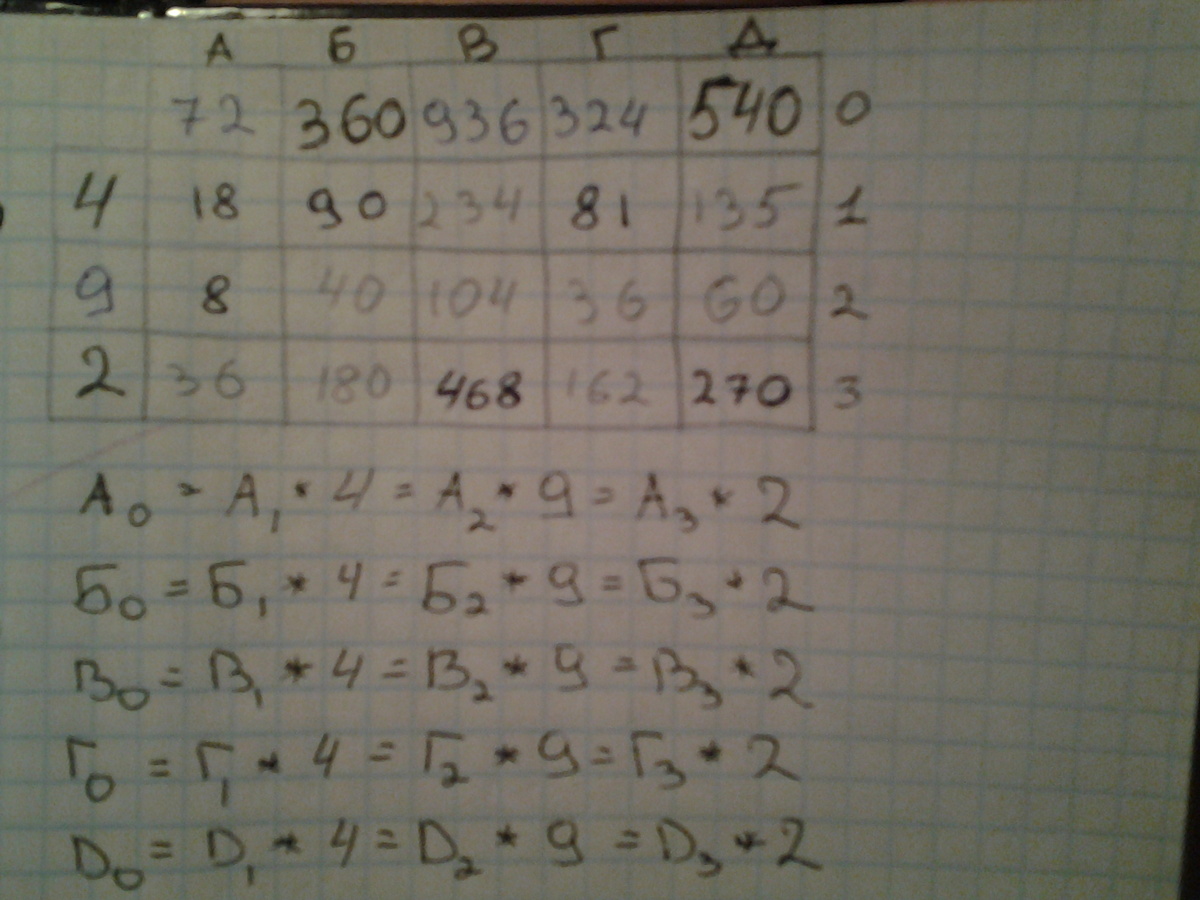 А Б В Г Д
72 360 936 324 540 0
4 18 90 234 81 135 1
9 8 40 104 36 60 2
2 36 180 468 162 270 3
А₀ = А₁ * 4 = А₂ * 9 = А₃ * 2
Б₀ = Б₁ * 4 = Б₂ * 9 = Б₃ * 2
В₀ = В₁ * 4 = В₂ * 9 = В₃ * 2
Г₀ = Г₁ * 4 = Г₂ * 9 = Г₃ * 2
D₀ = D₁ * 4 = D₂ * 9 = D₃ * 2